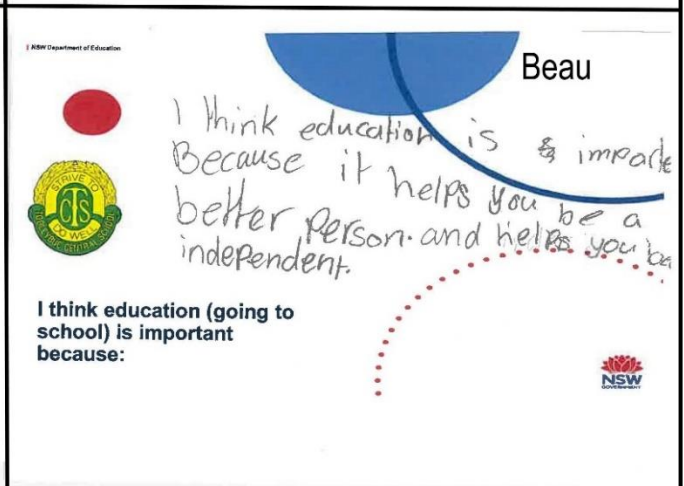 NSW Department of Education
Beau
I think education is importe
Because it helps you be a
better person. and helps you be
independent.
STRIVE TO
CTS
DO WELL
CENTRAL SCHOOL
I think education (going to
school) is important
because:
NSW
GOVERNMENT